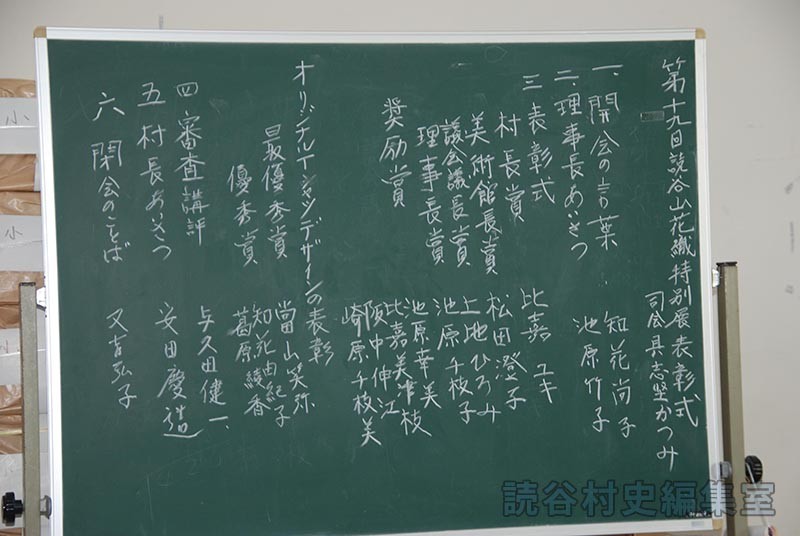 第十九回読谷山花織特別展表彰式
司会 具志堅かつみ
一、開会の言葉 知花尚子
二、理事長あいさつ 池原竹子
三 表彰式
村長賞 比嘉ユキ
美術館長賞 松田澄子
議会議長賞 上地ひろみ
理事長賞 池原千枝子
奨励賞 池原幸美
比嘉美津枝
阪中伸江
崎原千枝美
オリジナルTシャツデザインの表彰
最優秀賞 當山笑弥
優秀賞 知花由紀子
葛原綾香
四 審査講評 与久田健一
五 村長あいさつ 安田慶造
六 閉会のことば 又吉弘子
小
小
小
読谷村史編集室